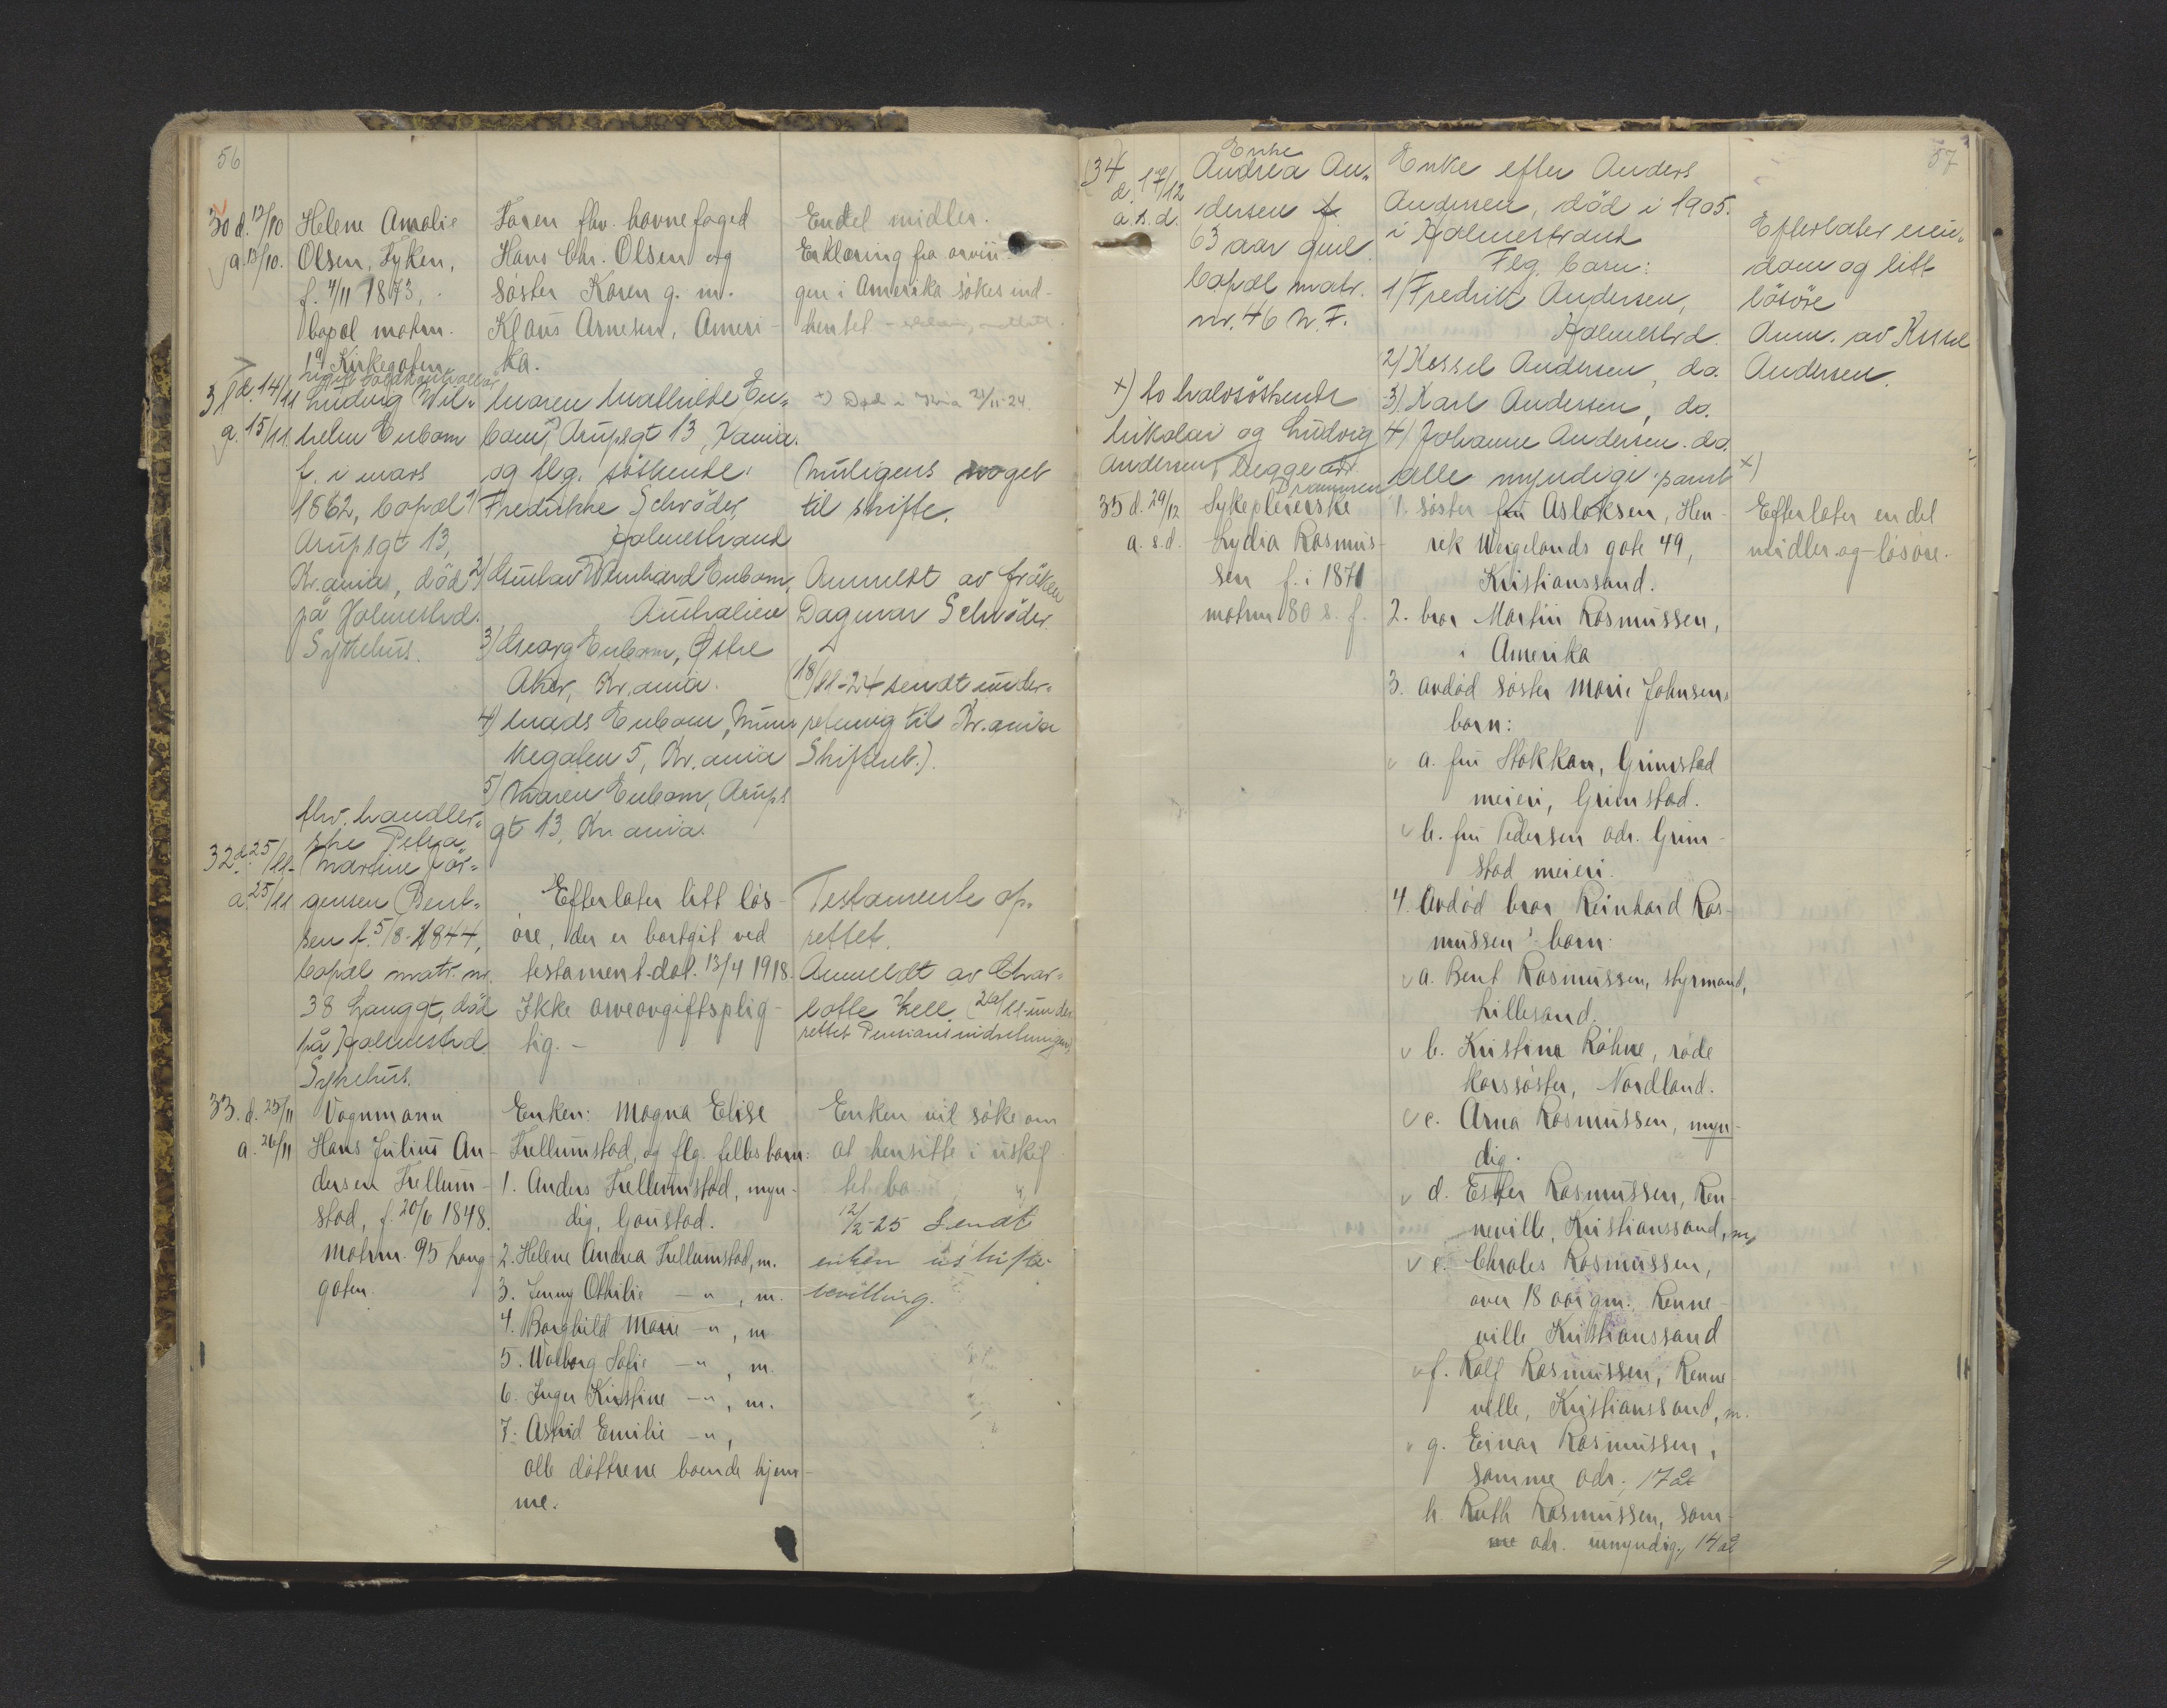 56
30 d. 12/10 Helene Amalie
a. 13/10. Olsen, frken,
f. 4/11 1873,
bopæl matrn.
19 Kirkegaten
Faren fhv. havnefoged
Hans Chr. Olsen og
søster Karen g. m.
Klaus Arnesen, Ameri-
ka.
Endel midler.
Erklæring fra arvin-
gen i Amerika søkes ind-
hentet
31 d. 14/11 Ludvig Wil-
a. 15/11 helm Enbom
f. i mars
1862, bopæl
Arupsgt 13,
Kr.ania, död
på Holmestrd.
Sykehus.
Maren Mathilde En-
bom, Arupsgt 13, Kania.
og flg. söskende:
1) Fredrikke Schröder,
Holmestrand
2) Gustav Wernhard Enbom,
Australien
3) Georg Enbom, Østre
Aker, Kr.ania.
4) Mads Enbom, Mun-
kegaten 5, Kr.ania
5) Maren Enbom, Arups
gt 13, Kr.ania.
+) Død i Kria 21/11-24.
Muligens noget
til skifte.
Anmeldt av fröken
Dagmar Schröder.
(18/11-24 sendt under-
retning til Kr.ania
Skifteret.).
32 d. 25/11- fhv. handler-
ske Petra
Marine Jör-
a. 25/11 gensen Bent-
sen f. 5/8-1844,
bopæl matr. nr.
38 Langgt, död
på Holmestrd.
Sykehus.
Efterlater litt løs-
øre, der er bortgit ved
testament dat. 13/4 1918.
Ikke arveavgiftsplig-
tig. -
Testamente op-
rettet.
Anmeldt av Char-
lotte Kell. (29/11-under-
rettet Pensionsindretningen)
33. d. 25/11 Vognmann
a. 26/11 Hans Julius An-
dersen Trellum-
stad, f. 20/6 1848.
Matrn. 95 Lang-
gaten.
Enken: Magna Elise
Trellumstad, og flg. felles barn:
1. Anders Trellumstad, myn-
dig, Gaustad.
2. Helene Andrea Trellumstad, m.
3. Jenny Othilie -"-, m.
4. Borghild Marie -"-, m
5. Walborg Sofie -"-, m.
6. Inger Kirstine -"-, m.
7. Astrid Emilie -"-,
alle døttrene boende hjem-
me.
Enken vil søke om
at hensitte i uskif-
tet bo.
12/2-25 Sendt
enken uskifte-
bevilling.
57
34 Enke
d. 17/12 Andrea An-
a. s. d. dersen
63 aar gml.
bopæl matr.
nr. 46 N. F.
Enke efter Anders
Andersen, död i 1905.
i Holmestrand
Flg. barn:
1) Fredrik Andersen,
Holmestrd.
2) Kessel Andersen, do.
3) Karl Andersen, do.
4) Johanne Andersen. do.
alle myndige. samt +)
+) to halvsöskende
Nikolai og Ludvig
Andersen, begge adr.
Drammen
Efterlater eien-
dom og litt
lösöre
Anm. av Kessel
Andersen.
35 d. 29/12 Sykepleierske
a. s. d. Lydia Rasmus-
sen f. i 1871
matrn 80 s. f.
1. Søster fru Aslaksen, Hen-
rek Wergelands gate 49,
Kristianssand.
2. bror Martin Rasmussen,
i Amerika
3. avdød søster Marie Johnsens
barn:
a. fru Stokkan, Grimstad
meieri, Grimstad.
b. fru Pedersen adr. Grim-
stad meieri.
4. Avdød bror Reinhard Ras-
mussen's barn:
a. Bent Rasmussen, styrmand,
Lillesand.
b. Kristine Røhne, røde
korssøster, Nordland.
c. Arna Rasmussen, myn-
dig.
d. Ester Rasmussen, Ren-
neville, Kristianssand, m,
e. Charles Rasmussen,
over 18 aar gm., Renne-
ville Kristianssand
f. Rolf Rasmussen, Renne-
ville, Kristianssand, m.
g. Einar Rasmussen,
samme adr., 17 år
h. Ruth Rasmussen, sam-
me adr. umyndig, 14 år
Efterlater en del
midler og løsøre.